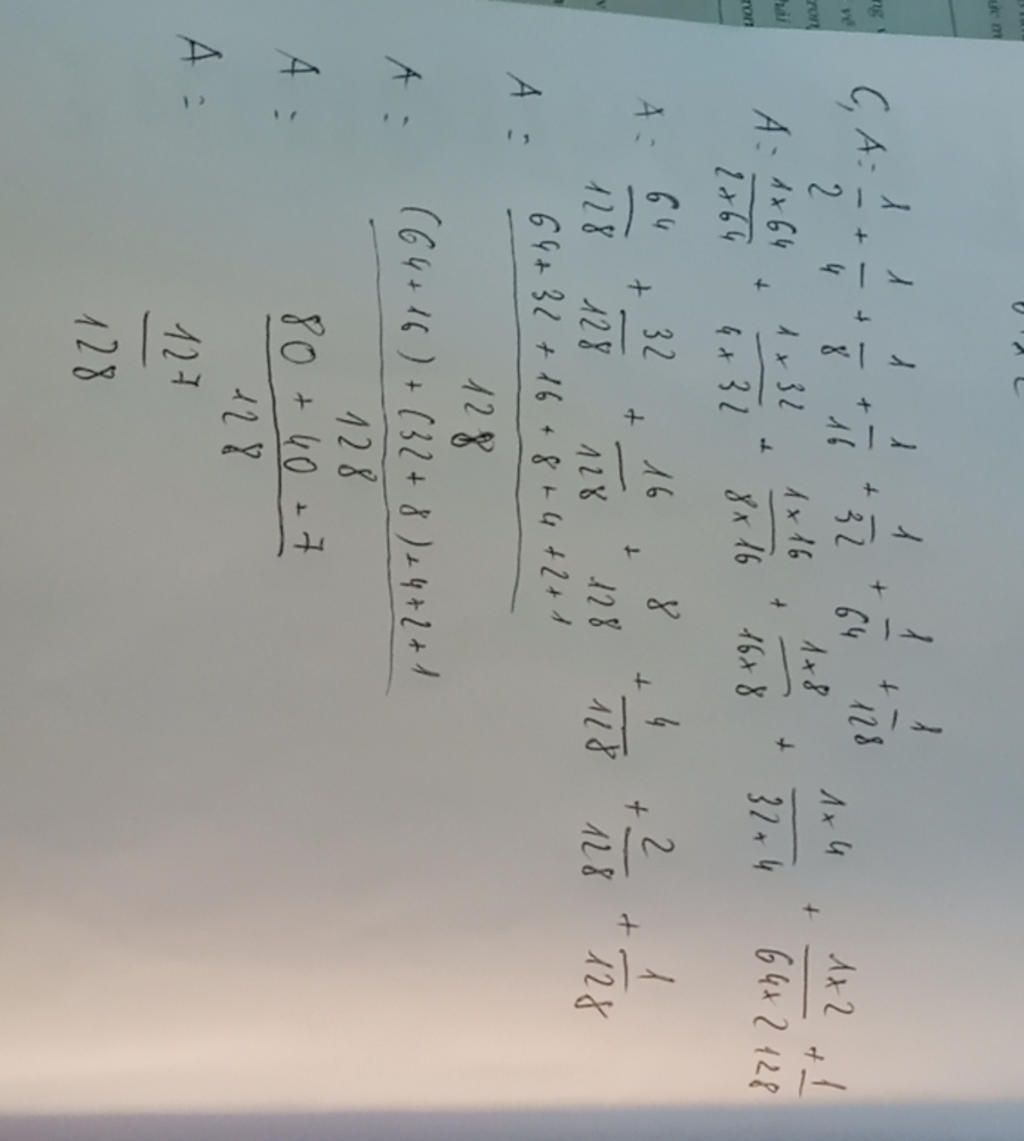 C, A = 1/2 + 1/4 + 1/8 + 1/16 + 1/32 + 1/64 + 1/128
A = 1×64/2×64 + 1×32/4×32 + 1×16/8×16 + 1×8/16×8 + 1×4/32×4 + 1×2/64×2 + 1/128
A = 64/128 + 32/128 + 16/128 + 8/128 + 4/128 + 2/128 + 1/128
A = 64 + 32 + 16 + 8 + 4 + 2 + 1/128
A = (64 + 16) + (32 + 8) + 4 + 2 + 1/128
A = 80 + 40 + 7/128
A = 127/128